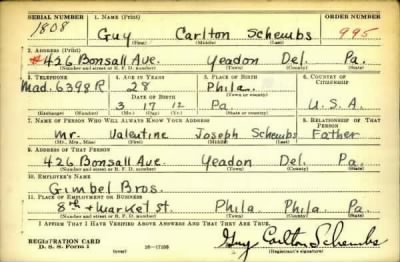 SERIAL NUMBER 1. NAME (Print) ORDER NUMBER
1808 Guy Carlton Schembs 995
(First) (Middle) (Last)
2. ADDRESS (Print)
#426 Bonsall Ave. Yeadon Del. Pa.
(Number and street or R. F. D. number) (Town) (County) (State)
3. TELEPHONE 4. AGE IN YEARS 5. PLACE OF BIRTH 6. COUNTRY OF CITIZENSHIP
Mad. 6398 R 28 Phila.
DATE OF BIRTH (Town or county)
3 17 12 Pa U.S.A.
(Exchange) (Number) (Mo.) (Day) (Yr.) (State or country)
7. NAME OF PERSON WHO WILL ALWAYS KNOW YOUR ADDRESS 8. RELATIONSHIP OF THAT PERSON
Mr. Valentine Joseph Schembs Father
(Mr., Mrs., Miss) (First) (Middle) (Last)
9. ADDRESS OF THAT PERSON
426 Bonsall Ave. Yeadon Del. Pa.
(Number and street or R. F. D. number) (Town) (County) (State)
10. EMPLOYER'S NAME
Gimbel Bros.
11. PLACE OF EMPLOYMENT OR BUSINESS
8th + Market St. Phila Phila. Pa.
(Number and street or R. F. D. number) (Town) (County) (State)
I AFFIRM THAT I HAVE VERIFIED ABOVE ANSWERS AND THAT THEY ARE TRUE.
REGISTRATION CARD
D. S. S. Form 1 (over) 16—17105 Guy Carlton Schembs
(Registrant's signature)